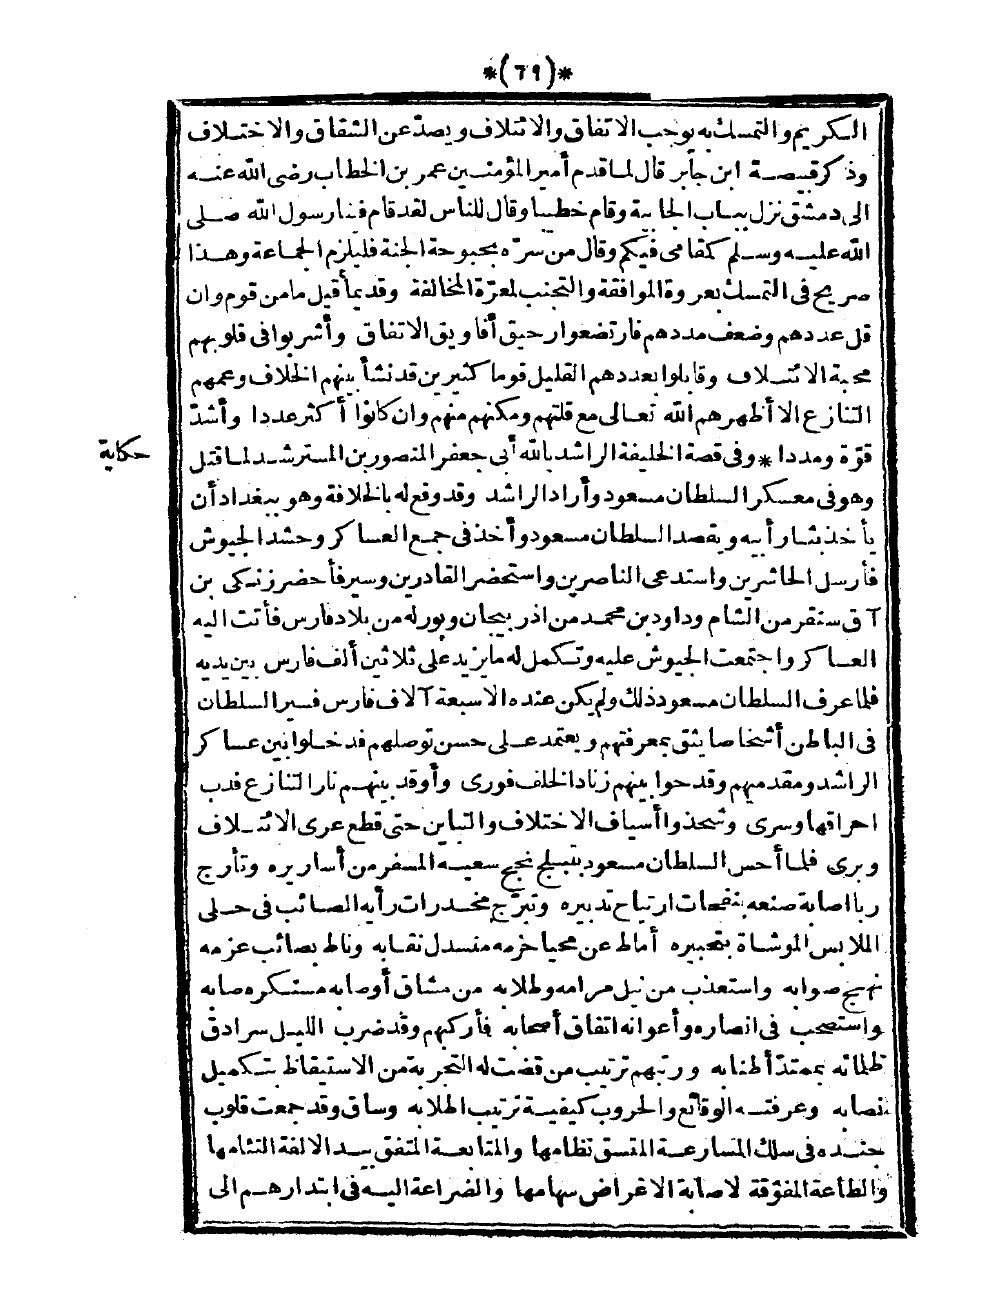 *(٦٩)*
الكريم والتمسك به يوجب الاتفاق والائتلاف ويصدّ عن الشقاق والاختلاف
وذكر قبيصة ابن جابر قال لما قدم أمير المؤمنين عمر بن الخطاب رضى الله عنه
الى دمشق نزل بباب الجابية وقام خطيبا وقال للناس لقد قام فينا رسول الله صلى
الله عليه وسلم كمقامى فيكم وقال من سرّه بحبوحة الجنة فليلزم الجماعة وهذا
صريح فى التمسك بعروة الموافقة والتجنب لمعرّة المخالفة وقد يما قيل ما من قوم وان
قل عددهم وضعف مددهم فارتضعوا رحيق أفاويق الاتفاق وأشربوا فى قلوبهم
محبة الائتلاف وقابلوا بعددهم القليل قوما كثيرين قد نشأ بينهم الخلاف وعمهم
التنازع الا أظهرهم الله تعالى مع قلتهم ومكنهم منهم وان كانوا أكثر عددا وأشدّ
قوّة ومددا * وفى قصة الخليفة الراشد بالله أبى جعفر المنصور بن المسترشد لما قتل
حكاية
وهو فى معسكر السلطان مسعود وأراد الراشد وقد وقع له بالخلافة وهو ببغداد أن
يأخذ بثار أبيه ويقصد السلطان مسعود وأخذ فى جمع العساكر وحشد الجيوش
فأرسل الحاشرين واستدعى الناصرين واستحضر القادرين وسير فأحضر زنكى بن
آق سنقر من الشام وداود بن محمد من اذربيجان وبورله من بلاد فارس فأتت اليه
العساكر واجتمعت الجيوش عليه وتكمل له ما يزيد على ثلاثين ألف فارس بين يديه
فلما عرف السلطان مسعود ذلك ولم يكن عنده الا سبعة آلاف فارس فسير السلطان
فى الباطن أشخاصا يثق بمعرفتهم ويعتمد على حسن توصلهم فدخلوا بين عساكر
الراشد ومقدميهم وقدحوا بينهم زناد الخلف فورى وأوقد بينهم نار التنازع فدب
احراقها وسرى وشحذوا أسياف الاختلاف والتباين حتى قطع عرى الائتلاف
وبرى فلما أحس السلطان مسعود بتبلج نجح سعيه المسفر من أساريره وتأرج
ريا اصابة صنعه بنفحات ارتياح تدبيره وتبرّج مخدرات رأيه الصائب فى حلى
الملابس الموشاة بتحبيره أماط عن محيا حزمه منسدل نقابه وناط بصائب عزمه
نهج صوابه واستعذب من نيل مرامه وطلابه من مشاق أوصابه مستكره صابه
واستصحب فى انصاره وأعوانه اتفاق أصحابه فأركبهم وقد ضرب الليل سرادق
ظلمائه بممتدّ أطنابه ورتبهم ترتيب من قضت له التجربة من الاستيقاظ بتكميل
نصابه وعرفته الوقائع والحروب كيفية ترتيب اطلابه وساق وقد جمعت قلوب
جنده فى سلك المسارعة المتسق نظامها والمتابعة المتفق بيد الالفة التئامها
والطاعة المفوّقة لاصابة الاغراض سهامها والضراعة اليه فى ابتدارهم الى